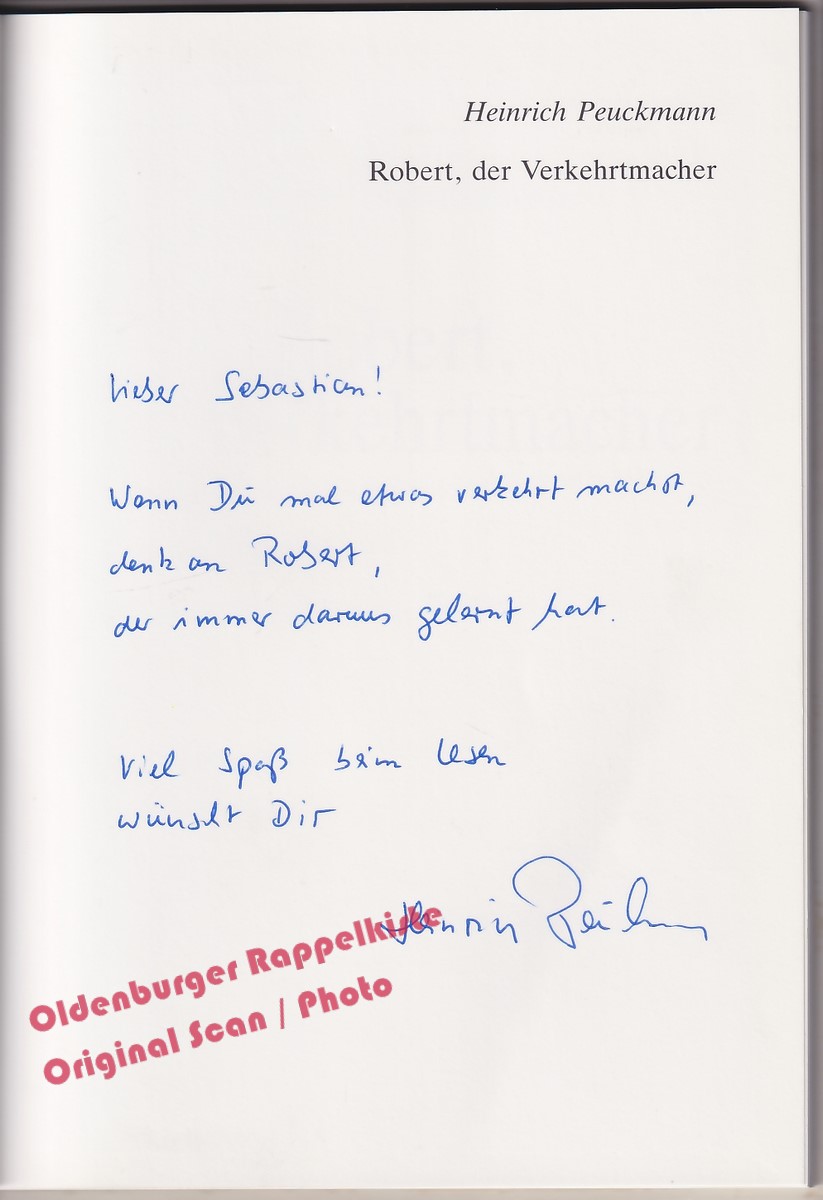 Heinrich Peuckmann
Robert, der Verkehrtmacher
Lieber Sebastian!
Wenn Du mal etwas verkehrt machst,
denk an Robert,
der immer daraus gelernt hat.
Viel Spaß beim Lesen
wünscht Dir
Heinrich Peuckmann
Oldenburger Rappelkiste
Original Scan / Photo